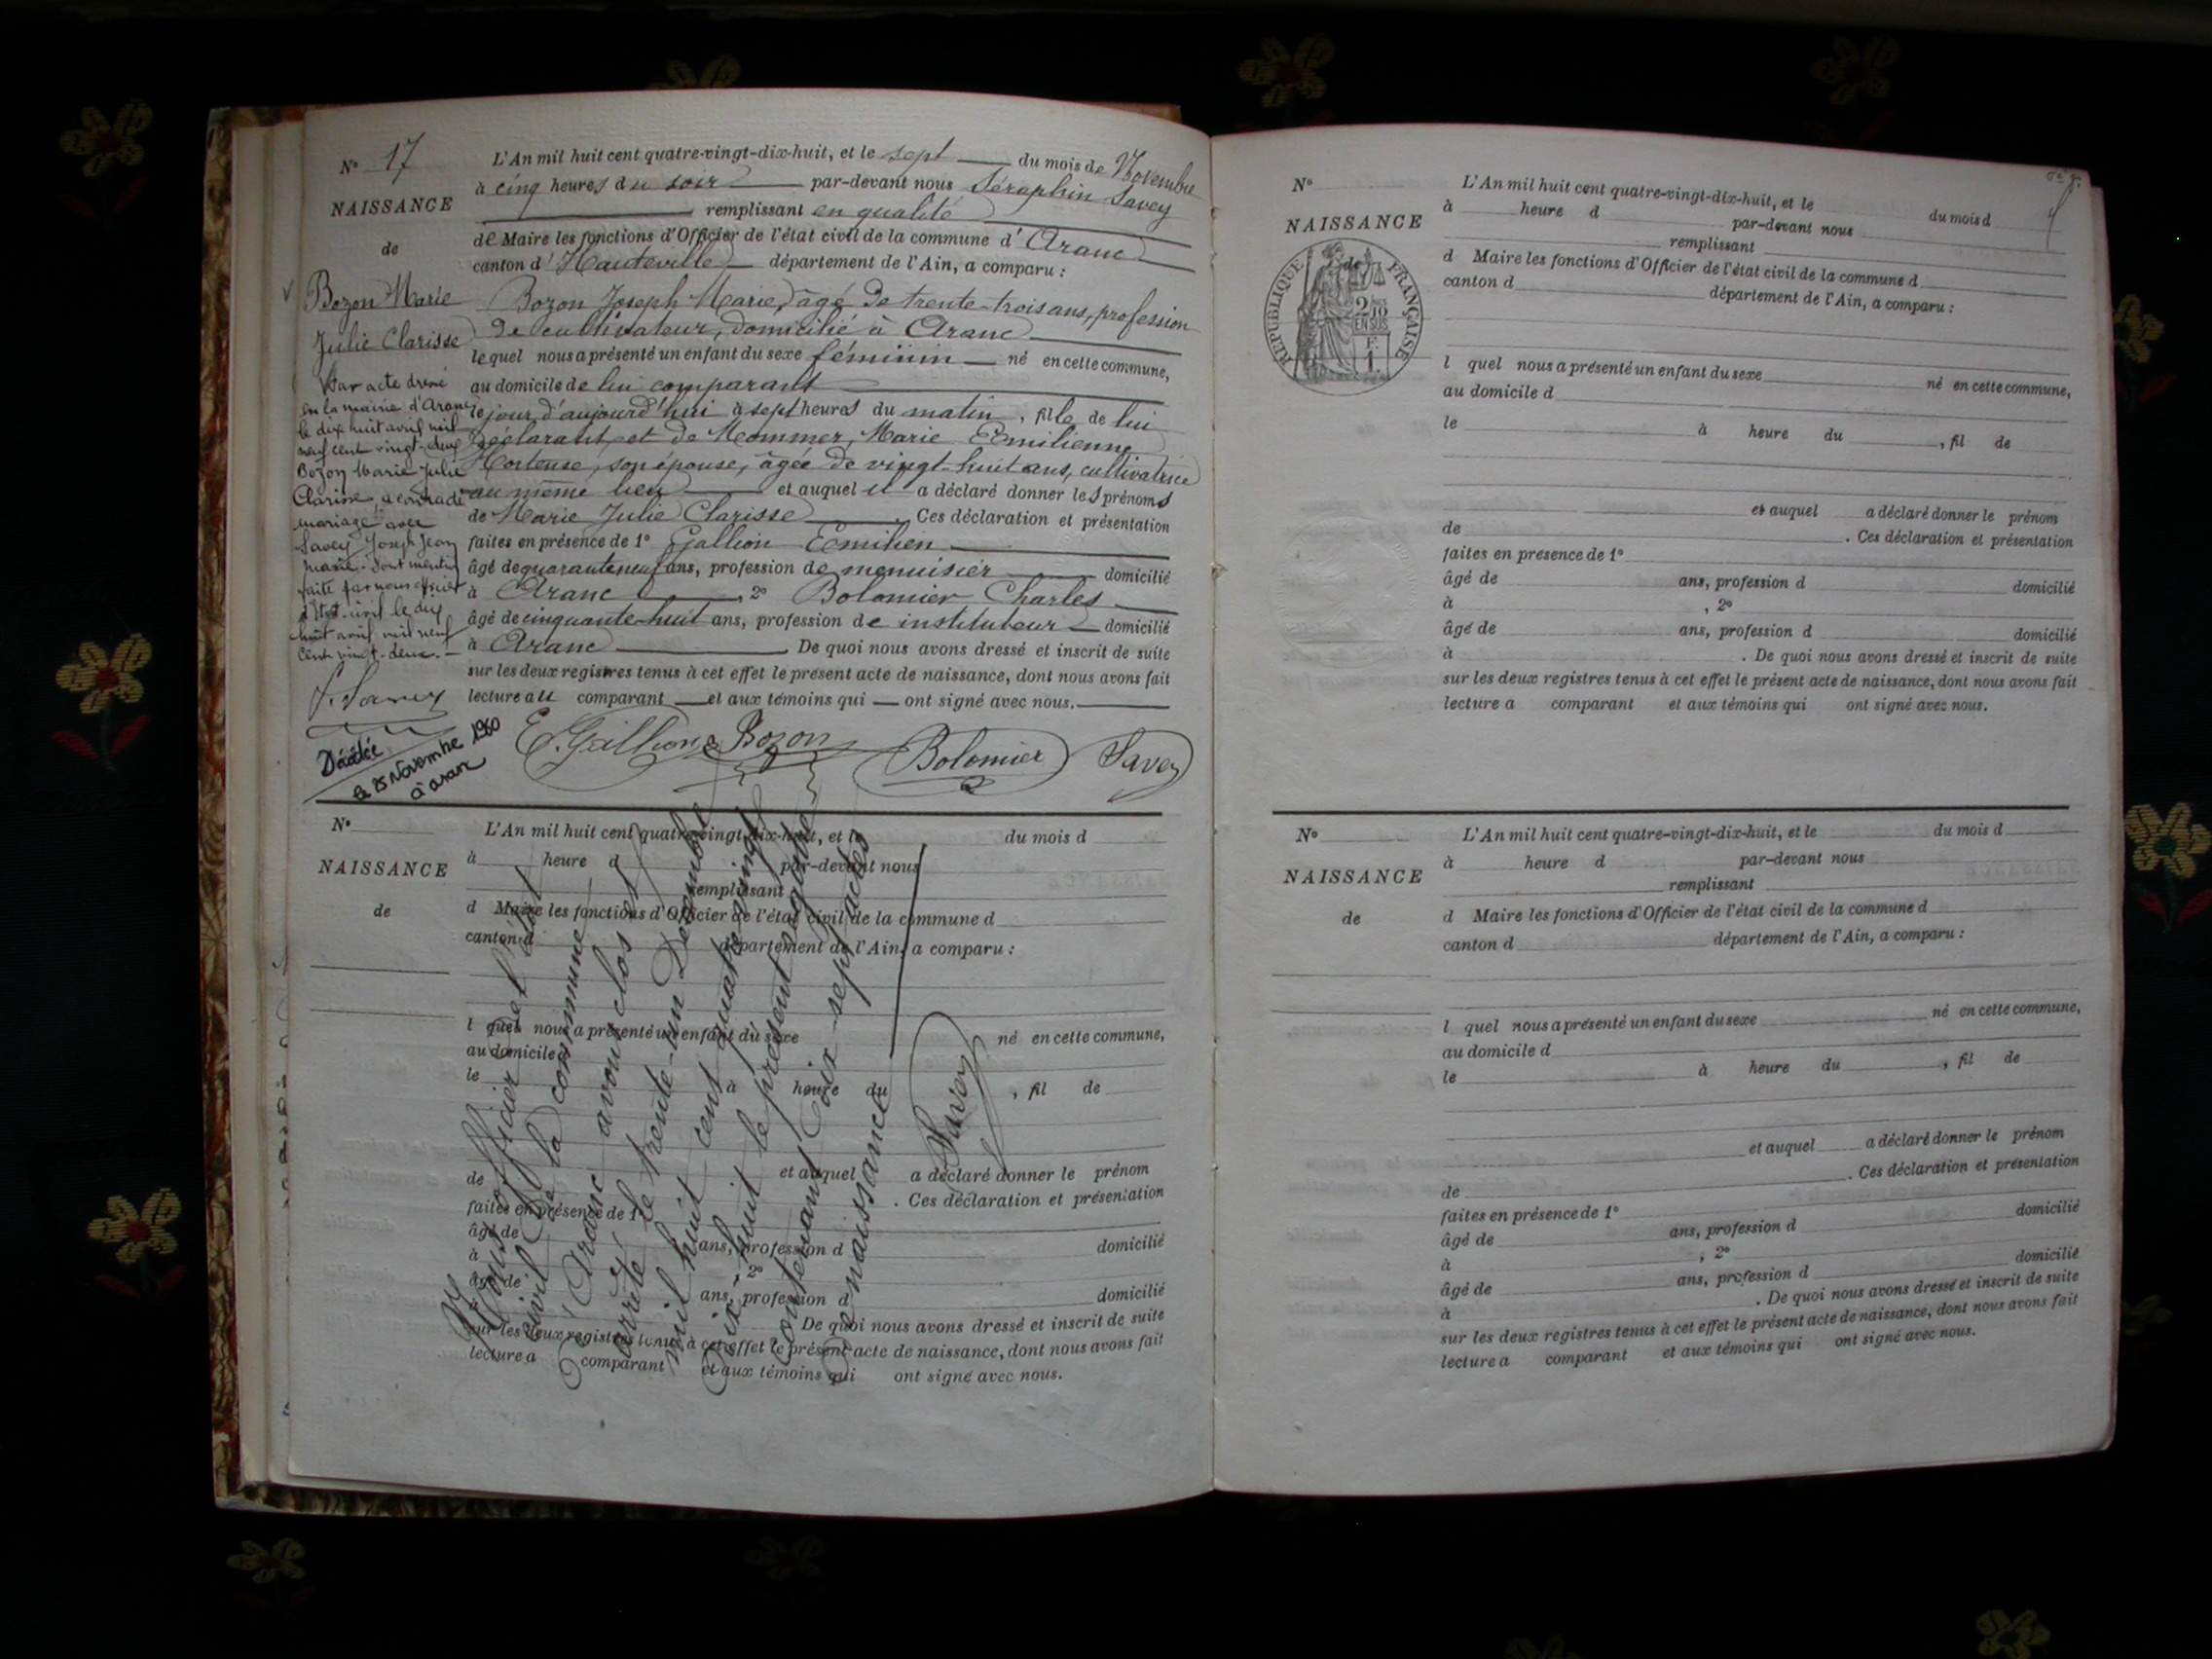 N° 17
NAISSANCE
de
Bozon Marie
Julie Clarisse
Par acte dressé
en la mairie d'Aranc
le dix huit avril mil
neuf cent vingt-deux
Bozon Marie Julie
Clarisse, a contracté
mariage avec
Savey Joseph Jean
Marie. Dont mention
faite par nous officier
d'Etat-civil le dix
huit avril mil neuf
cent vingt-deux.
Savey
Décédée
le 25 Novembre 1960
à aranc
L'An mil huit cent quatre-vingt-dix-huit, et le sept du mois de Novembre
à cinq heures du soir par-devant nous Séraphin Savey
remplissant en qualité
de Maire les fonctions d'Officier de l'état civil de la commune d'Aranc
canton d'Hauteville département de l'Ain, a comparu :
Bozon Joseph Marie, âgé de trente-trois ans, profession
de cultivateur, domicilié à Aranc
lequel nous a présenté un enfant du sexe féminin né en cette commune,
au domicile de lui comparant
le jour d'aujourd'hui à sept heures du matin, fille de lui
déclarant, et de Mommer, Marie Emilienne
Hortense, son épouse, âgée de vingt-huit ans, cultivatrice
au même lieu et auquel il a déclaré donner les prénoms
de Marie Julie Clarisse. Ces déclaration et présentation
faites en présence de 1° Gallion Emilien
âgé de quarante neuf ans, profession de menuisier domicilié
à Aranc, 2° Bolomier Charles
âgé de cinquante-huit ans, profession de instituteur domicilié
à Aranc. De quoi nous avons dressé et inscrit de suite
sur les deux registres tenus à cet effet le présent acte de naissance, dont nous avons fait
lecture au comparant et aux témoins qui ont signé avec nous.
E. Gallion Bozon Bolomier Savey
N°
NAISSANCE
de
L'An mil huit cent quatre-vingt-dix-huit, et le du mois d
à heure d par-devant nous
remplissant
d Maire les fonctions d'Officier de l'état civil de la commune d
canton d département de l'Ain, a comparu :
l quel nous a présenté un enfant du sexe né en cette commune,
au domicile d
le à heure du , fil de
et auquel a déclaré donner le prénom
de . Ces déclaration et présentation
faites en présence de 1°
âgé de ans, profession d domicilié
à , 2°
âgé de ans, profession d domicilié
à . De quoi nous avons dressé et inscrit de suite
sur les deux registres tenus à cet effet le présent acte de naissance, dont nous avons fait
lecture a comparant et aux témoins qui ont signé avec nous.
Nous officier de l'état
civil de la commune
d'Aranc avons clos et
arrêté le trente-un Décembre
mil huit cent quatre vingt
dix-huit le présent registre
contenant dix-sept actes
de naissance
Savey
N°
NAISSANCE
de
RÉPUBLIQUE FRANÇAISE
2/10
EN SUS
F.
1.
L'An mil huit cent quatre-vingt-dix-huit, et le du mois d
à heure d par-devant nous
remplissant
d Maire les fonctions d'Officier de l'état civil de la commune d
canton d département de l'Ain, a comparu :
l quel nous a présenté un enfant du sexe né en cette commune,
au domicile d
le à heure du , fil de
et auquel a déclaré donner le prénom
de . Ces déclaration et présentation
faites en présence de 1°
âgé de ans, profession d domicilié
à , 2°
âgé de ans, profession d domicilié
à . De quoi nous avons dressé et inscrit de suite
sur les deux registres tenus à cet effet le présent acte de naissance, dont nous avons fait
lecture a comparant et aux témoins qui ont signé avec nous.
N°
NAISSANCE
de
L'An mil huit cent quatre-vingt-dix-huit, et le du mois d
à heure d par-devant nous
remplissant
d Maire les fonctions d'Officier de l'état civil de la commune d
canton d département de l'Ain, a comparu :
l quel nous a présenté un enfant du sexe né en cette commune,
au domicile d
le à heure du , fil de
et auquel a déclaré donner le prénom
de . Ces déclaration et présentation
faites en présence de 1°
âgé de ans, profession d domicilié
à , 2°
âgé de ans, profession d domicilié
à . De quoi nous avons dressé et inscrit de suite
sur les deux registres tenus à cet effet le présent acte de naissance, dont nous avons fait
lecture a comparant et aux témoins qui ont signé avec nous.